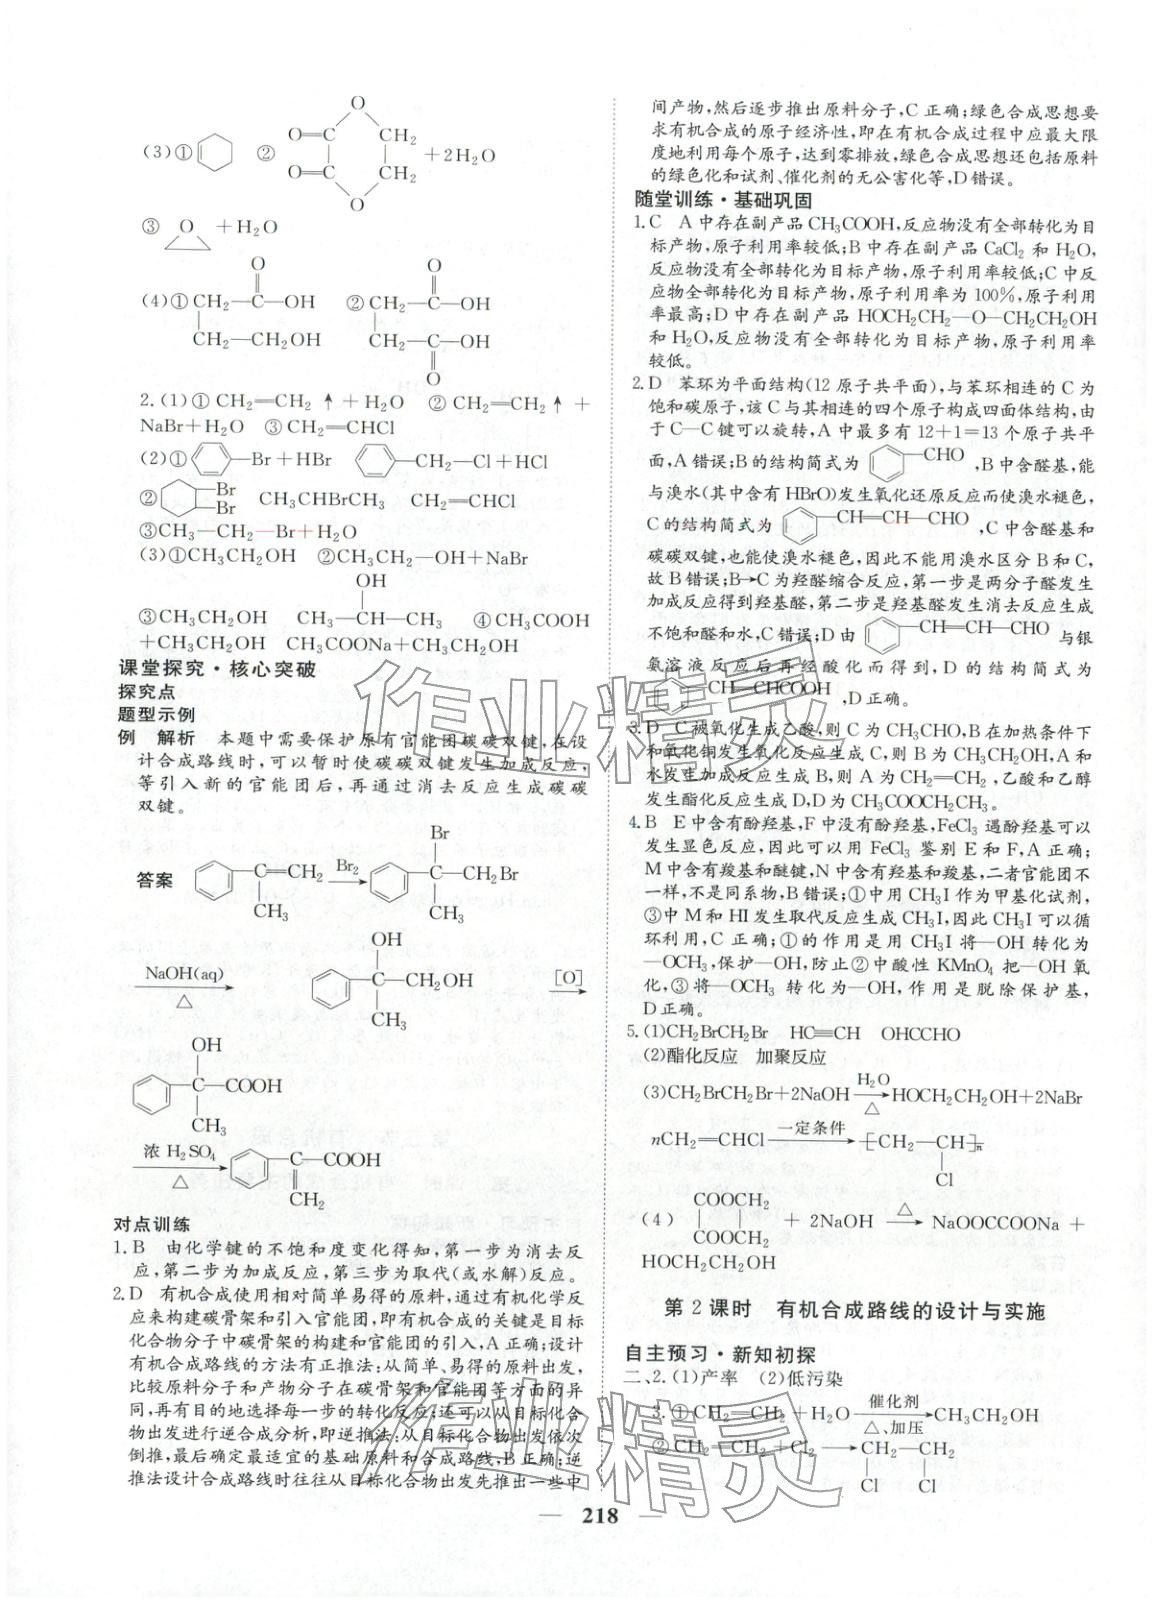 (3)① ② O O C CH₂ O C CH₂ O +2H₂O
③ O +H₂O
(4)① CH₂—C—OH O CH₂—CH₂—OH ② CH₂—C—OH O CH₂—C—OH O
2.(1)① CH₂═CH₂↑+H₂O ② CH₂═CH₂↑+
NaBr+H₂O ③ CH₂═CHCl
(2)① —Br+HBr —CH₂—Cl+HCl
② Br Br CH₃CHBrCH₃ CH₂═CHCl
③CH₃—CH₂—Br+H₂O
(3)①CH₃CH₂OH ②CH₃CH₂—OH+NaBr
③CH₃CH₂OH CH₃—CH—CH₃ OH ④CH₃COOH
+CH₃CH₂OH CH₃COONa+CH₃CH₂OH
课堂探究·核心突破
探究点
题型示例
例 解析 本题中需要保护原有官能团碳碳双键,在设
计合成路线时,可以暂时使碳碳双键发生加成反应,
等引入新的官能团后,再通过消去反应生成碳碳
双键。
答案 C═CH₂ CH₃ Br₂ Br C—CH₂Br CH₃
NaOH(aq) △ OH C—CH₂OH CH₃ [O]
OH C—COOH CH₃
浓 H₂SO₄ △ C—COOH CH₂
对点训练
1.B 由化学键的不饱和度变化得知,第一步为消去反
应,第二步为加成反应,第三步为取代(或水解)反应。
2.D 有机合成使用相对简单易得的原料,通过有机化学反
应来构建碳骨架和引入官能团,即有机合成的关键是目标
化合物分子中碳骨架的构建和官能团的引入,A正确;设计
有机合成路线的方法有正推法:从简单、易得的原料出发,
比较原料分子和产物分子在碳骨架和官能团等方面的异
同,再有目的地选择每一步的转化反应;还可以从目标化合
物出发进行逆合成分析,即逆推法:从目标化合物出发依次
倒推,最后确定最适宜的基础原料和合成路线,B正确;逆
推法设计合成路线时往往从目标化合物出发先推出一些中
间产物,然后逐步推出原料分子,C正确;绿色合成思想要
求有机合成的原子经济性,即在有机合成过程中应最大限
度地利用每个原子,达到零排放,绿色合成思想还包括原料
的绿色化和试剂、催化剂的无公害化等,D错误。
随堂训练·基础巩固
1.C A中存在副产品CH₃COOH,反应物没有全部转化为目
标产物,原子利用率较低;B中存在副产品 CaCl₂ 和 H₂O,
反应物没有全部转化为目标产物,原子利用率较低;C中反
应物全部转化为目标产物,原子利用率为100%,原子利用
率最高;D中存在副产品 HOCH₂CH₂—O—CH₂CH₂OH
和H₂O,反应物没有全部转化为目标产物,原子利用率
较低。
2.D 苯环为平面结构(12原子共平面),与苯环相连的C为
饱和碳原子,该C与其相连的四个原子构成四面体结构,由
于C—C键可以旋转,A中最多有12+1=13个原子共平
面,A错误;B的结构简式为 CHO ,B中含醛基,能
与溴水(其中含有HBrO)发生氧化还原反应而使溴水褪色,
C的结构简式为 CH═CH—CHO ,C中含醛基和
碳碳双键,也能使溴水褪色,因此不能用溴水区分B和C,
故B错误;B→C为羟醛缩合反应,第一步是两分子醛发生
加成反应得到羟基醛,第二步是羟基醛发生消去反应生成
不饱和醛和水,C错误;D由 CH═CH—CHO 与银
氨溶液反应后再经酸化而得到,D的结构简式为
CH═CHCOOH ,D正确。
3.D C被氧化生成乙酸,则C为CH₃CHO,B在加热条件下
和氧化铜发生氧化反应生成C,则B为CH₃CH₂OH,A和
水发生加成反应生成B,则A为CH₂═CH₂,乙酸和乙醇
发生酯化反应生成D,D为CH₃COOCH₂CH₃。
4.B E中含有酚羟基,F中没有酚羟基,FeCl₃遇酚羟基可以
发生显色反应,因此可以用FeCl₃鉴别E和F,A正确;
M中含有羧基和醚键,N中含有羟基和羧基,二者官能团不
一样,不是同系物,B错误;①中用CH₃I作为甲基化试剂,
③中M和HI发生取代反应生成CH₃I,因此CH₃I可以循
环利用,C正确;①的作用是用CH₃I将—OH转化为
—OCH₃,保护—OH,防止②中酸性KMnO₄把—OH氧
化,③将—OCH₃转化为—OH,作用是脱除保护基,
D正确。
5.(1)CH₂BrCH₂Br HC≡CH OHCCHO
(2)酯化反应 加聚反应
(3)CH₂BrCH₂Br+2NaOH H₂O △ HOCH₂CH₂OH+2NaBr
nCH₂═CHCl 一定条件 [CH₂—CH]n Cl
(4) COOCH₂ COOCH₂ +2NaOH △ NaOOCCOONa+
HOCH₂CH₂OH
第2课时 有机合成路线的设计与实施
自主预习·新知初探
二、2.(1)产率 (2)低污染
3.①CH₂═CH₂+H₂O 催化剂 △、加压 CH₃CH₂OH
②CH₂═CH₂+Cl₂ CH₂—CH₂ Cl Cl
— 218 —
作业精灵
作业精灵